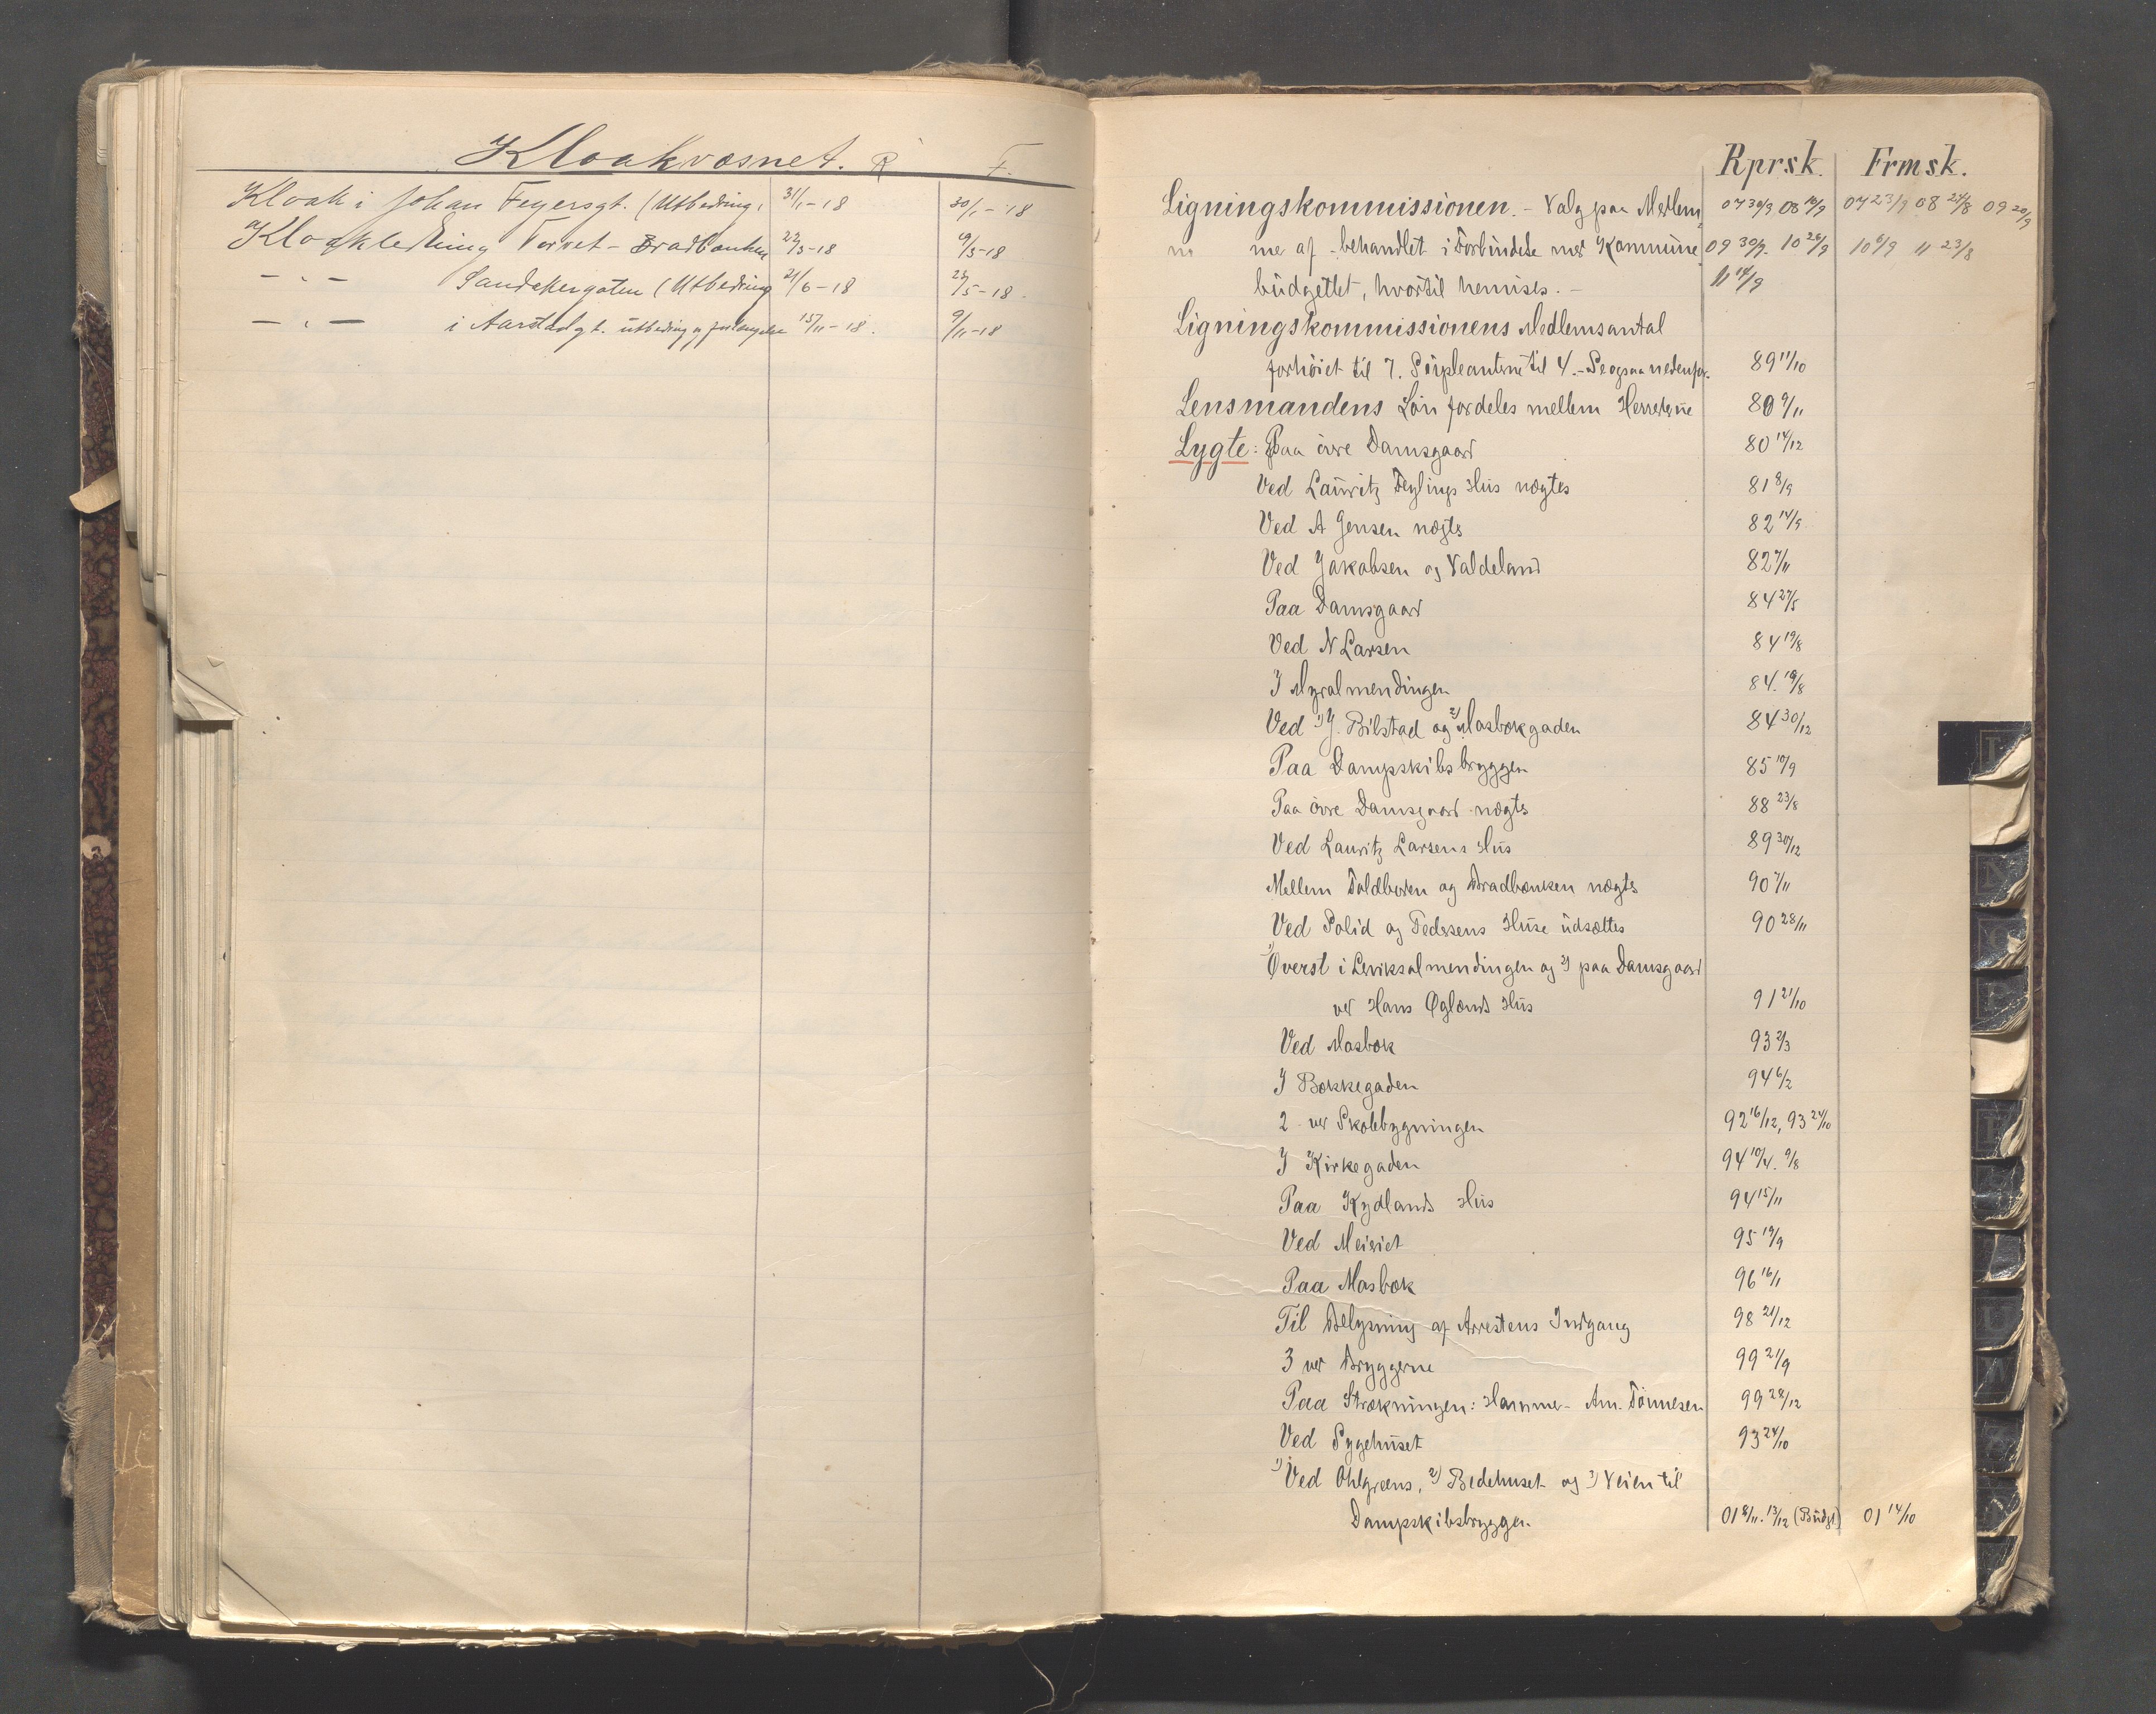 Kloakvæsnet. R F.
Kloak i Johan Feyersgt. (Utbedring, 31/1-18 30/1-18
Kloakledning Torvet - Bradbænken 22/3-18 19/3-18
— „ — Sandakergaten (Utbedring 21/6-18 23/5-18.
— „ — i Aarstadgt. utbedring og forlængelse 15/11-18. 9/11-18
Rprsk. Frmsk.
Ligningskommissionen. - Valg paa Medlem 07 30/9 08 10/9 07 23/9 08 24/8 09 20/9
me af - behandlet i Forbindelse med Kommune 09 30/9. 10 26/9 10 6/9 11 23/8
budgettet, hvortil henvises. - 11 14/9
Ligningskommissionens Medlemsantal
forhöiet til 7. Suppleanterne til 4. - Se ogsaa nedenfor. 89 11/10
Lensmandens Lön fordeles mellem Herrederne 80 9/11
Lygte: Paa övre Damsgaard 80 14/12
Ved Lauritz Feylings Hus nægtes 81 8/9
Ved A Jensen nægtes 82 14/9
Ved Jakobsen og Valdeland 82 7/11
Paa Damsgaard 84 27/5
Ved N Larsen 84 19/8
I Myralmendingen 84. 19/8
Ved 1) J. Bilstad og 2) Mosbækgaden 84 30/12
Paa Dampskibsbryggen 85 10/9
Paa övre Damsgaard nægtes 88 23/8
Ved Lauritz Larsens Hus 89 30/12
Mellem Toldboden og Bradbænken nægtes 90 7/11
Ved Polid og Pedersens Huse udsættes 90 28/11
1) Øverst i Lerviksalmendingen og 2) paa Damsgaard
ved Hans Øglænds Hus 91 21/10
Ved Mosbæk 93 2/3
I Bøkkegaden 94 6/2
2 ved Skolebygningen 92 16/12, 93 24/10
I Kirkegaden 94 10/4. 9/8
Paa Kydlands Hus 94 15/11
Ved Meieriet 95 19/9
Paa Mosbæk 96 16/1
Til Belysning af Arrestens Indgang 98 21/12
3 ved Bryggerne 99 21/9
Paa Strækningen: Hammer - Am. Tönnesen 99 28/12
Ved Sygehuset 93 24/10
1) Ved Ohlgreens, 2) Bedehuset og 3) Veien til
Dampskibsbryggen. 01 8/11. 13/12 (Budgt) 01 14/10